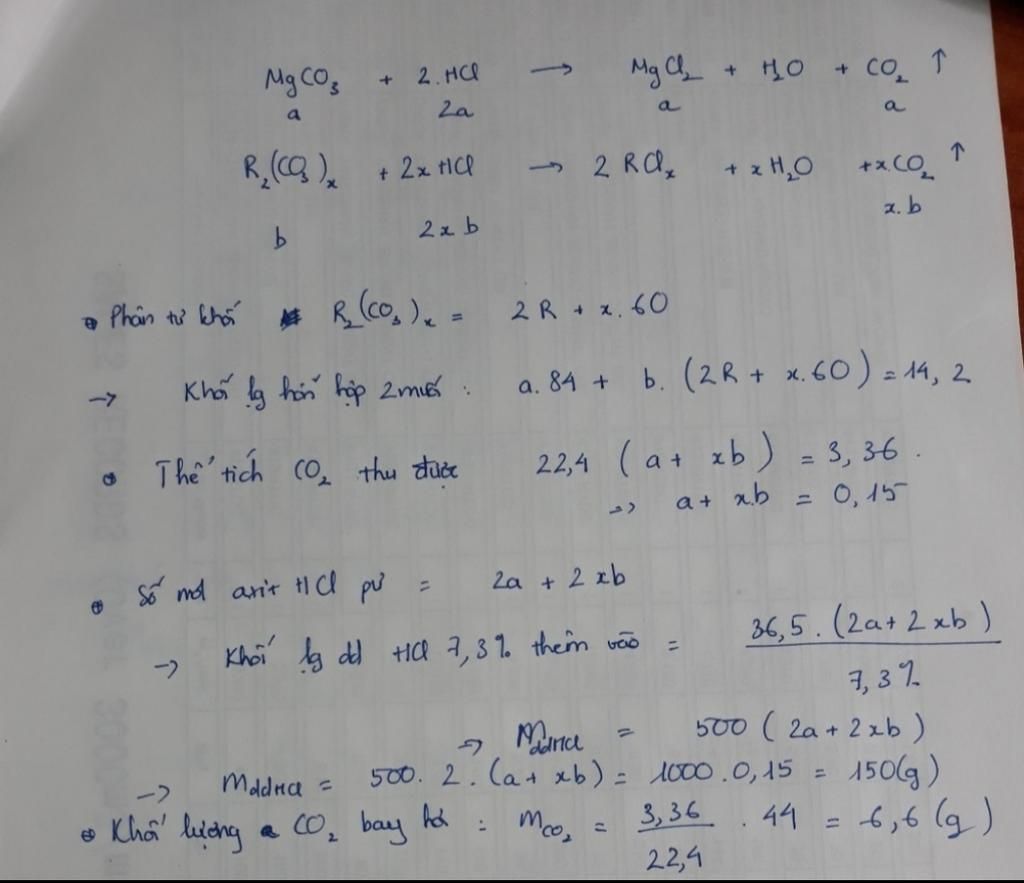 MgCO₃ + 2.HCl → MgCl₂ + H₂O + CO₂ ↑
a 2a a a
R₂(CO₃)ₓ + 2xHCl → 2 RClₓ + xH₂O + x.CO₂ ↑
b 2xb x.b
Phân tử khối R₂(CO₃)ₓ = 2R + x.60
→ Khối lg hỗn hợp 2 muối : a.84 + b.(2R + x.60) = 14,2
Thể tích CO₂ thu được 22,4 (a + xb) = 3,36.
=> a + x.b = 0,15
Số mol axit HCl pư = 2a + 2xb
→ Khối lg dd HCl 7,3% thêm vào = 36,5.(2a + 2xb) / 7,3%
=> MddHCl = 500 (2a + 2xb)
→ MddHCl = 500. 2.(a + xb) = 1000.0,15 = 150(g)
Khối lượng CO₂ bay hơi : mCO₂ = 3,36 / 22,4 . 44 = 6,6 (g)